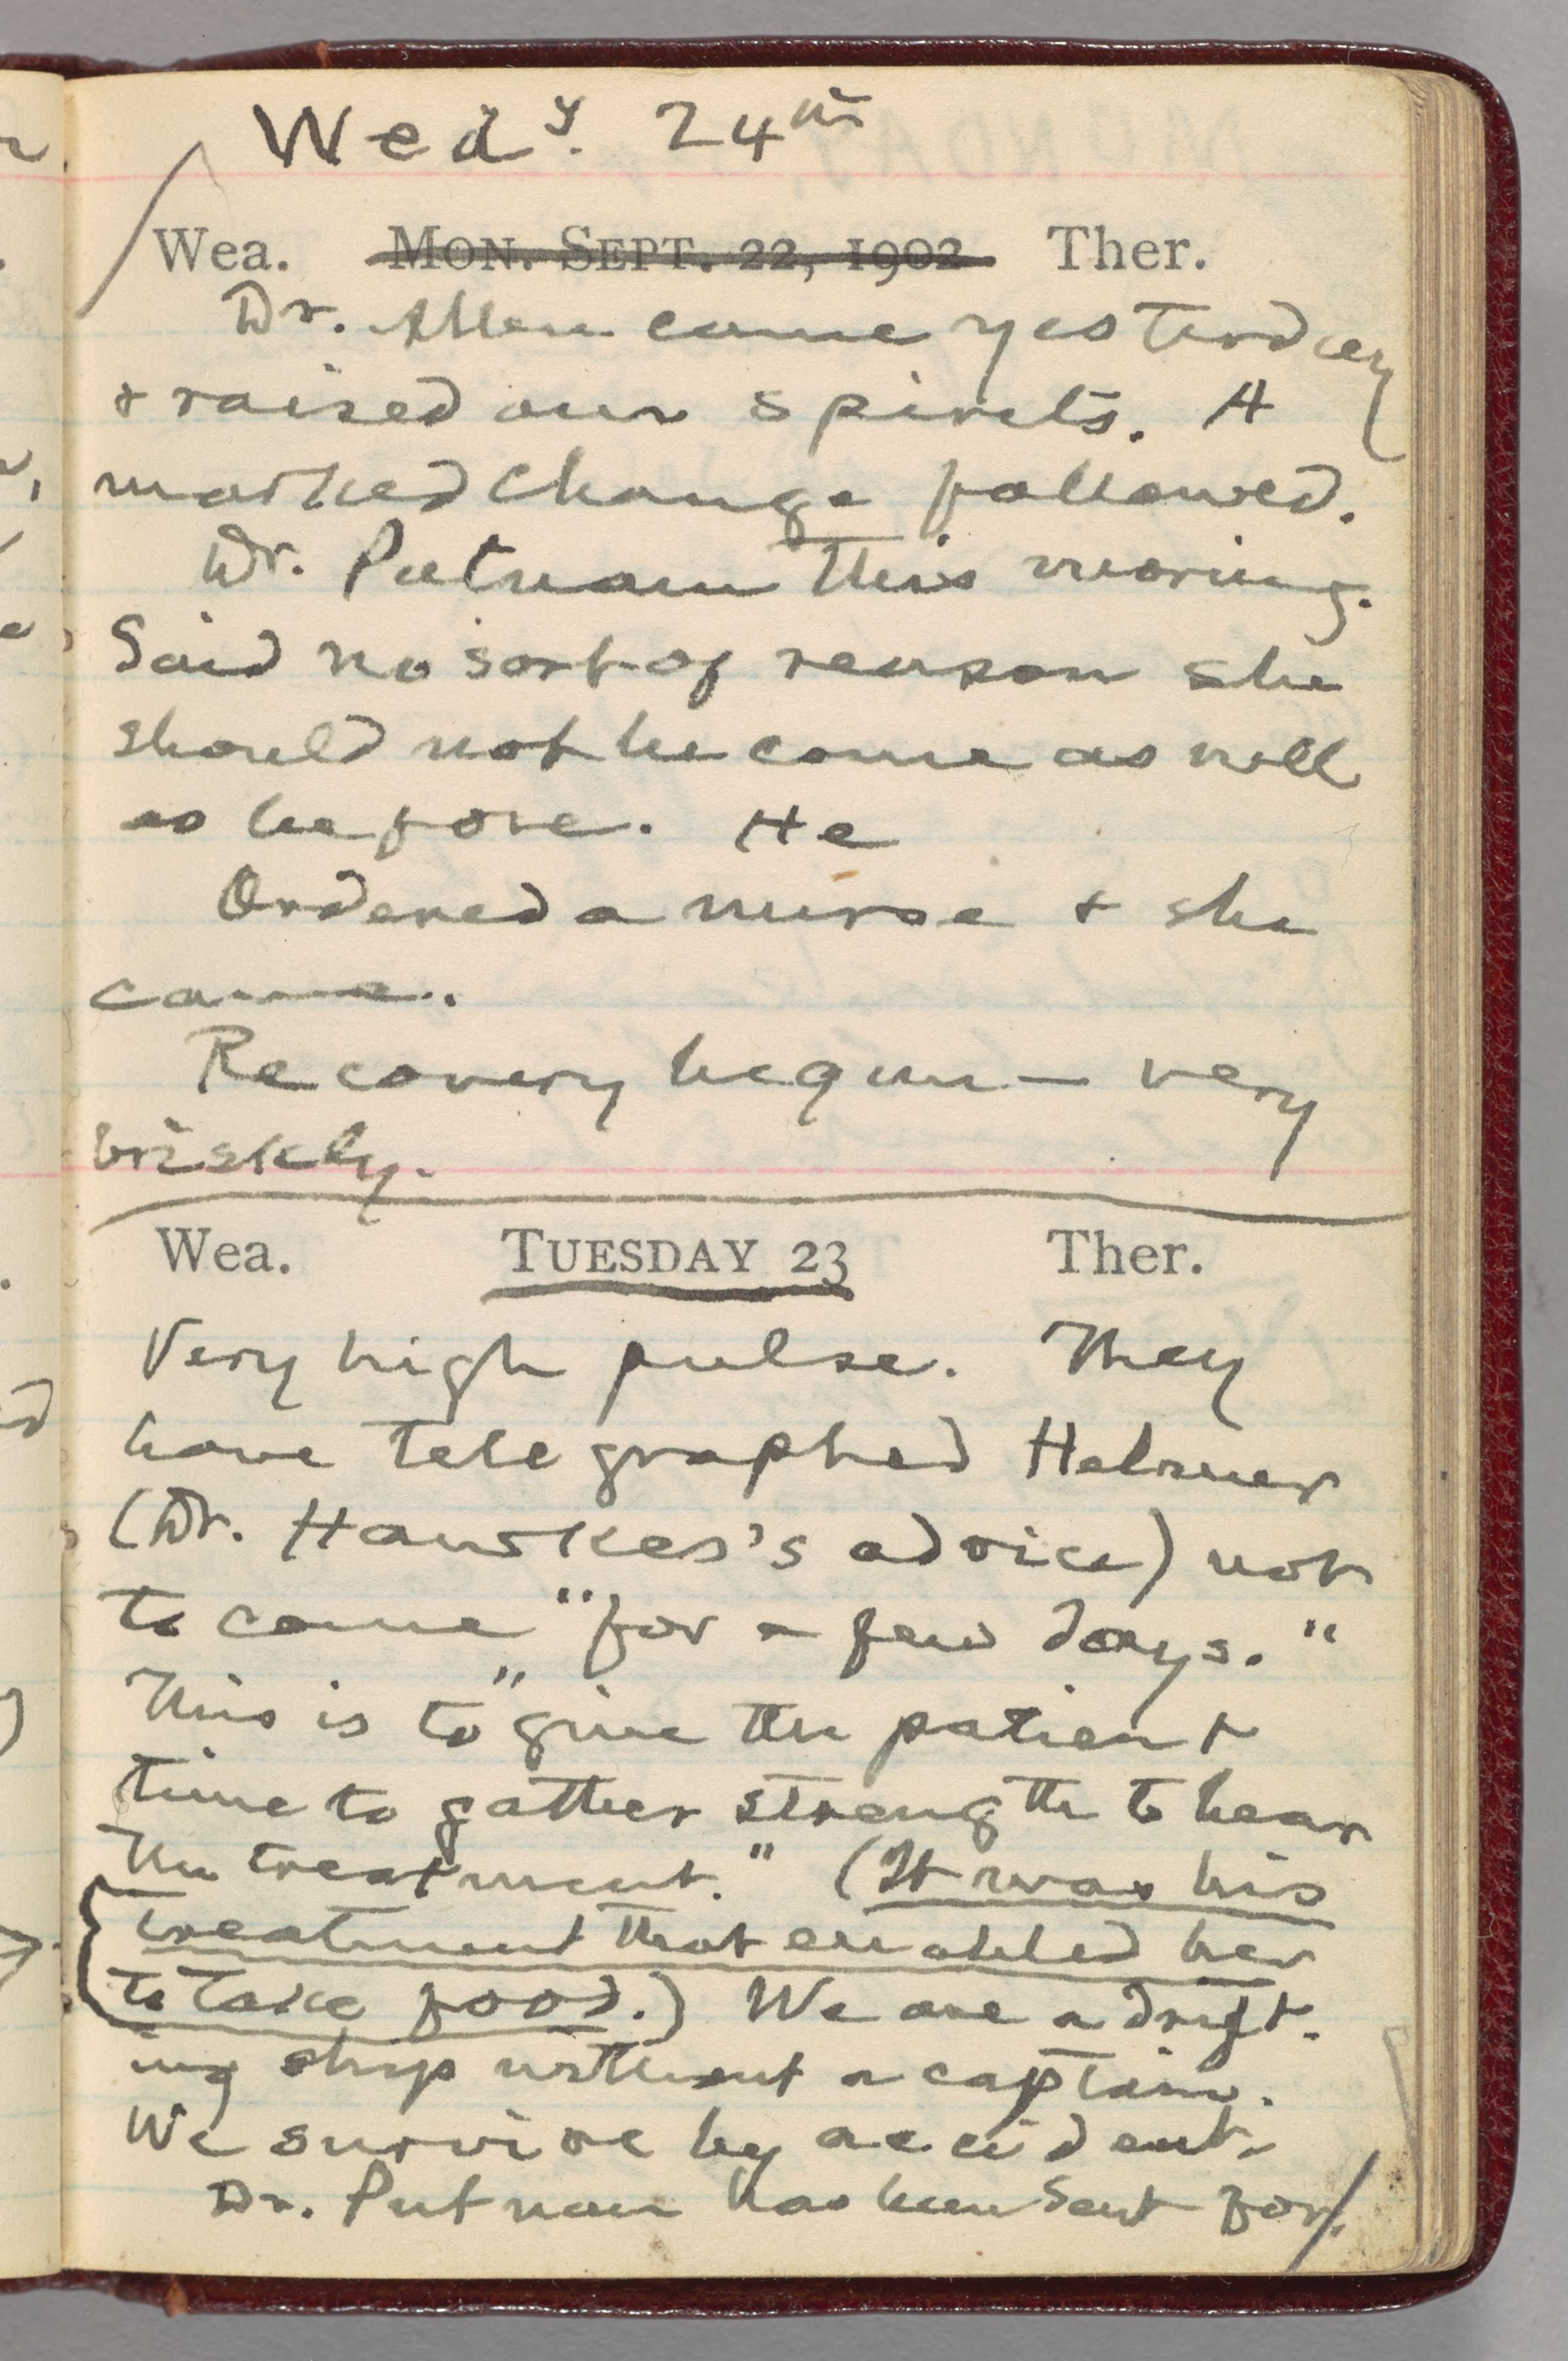 Wedy. 24th
Wea. MON. SEPT. 22, 1902 Ther.
Dr. Allen came yesterday
& raised our spirits. A
marked change followed.
Dr. Putnam this morning.
Said no sort of reason she
should not become as well
as before. He
Ordered a nurse & she
came.
Recovery begun — very
briskly.
Wea. TUESDAY 23 Ther.
Very high pulse. They
have telegraphed Helmer
(Dr. Hawkes's advice) not
to come "for a few days."
This is to "give the patient
time to gather strength to bear
the treatment." (It was his
treatment that enabled her
to take food.) We are a drift-
ing ship without a captain.
We survive by accident.
Dr. Putnam has been sent for.